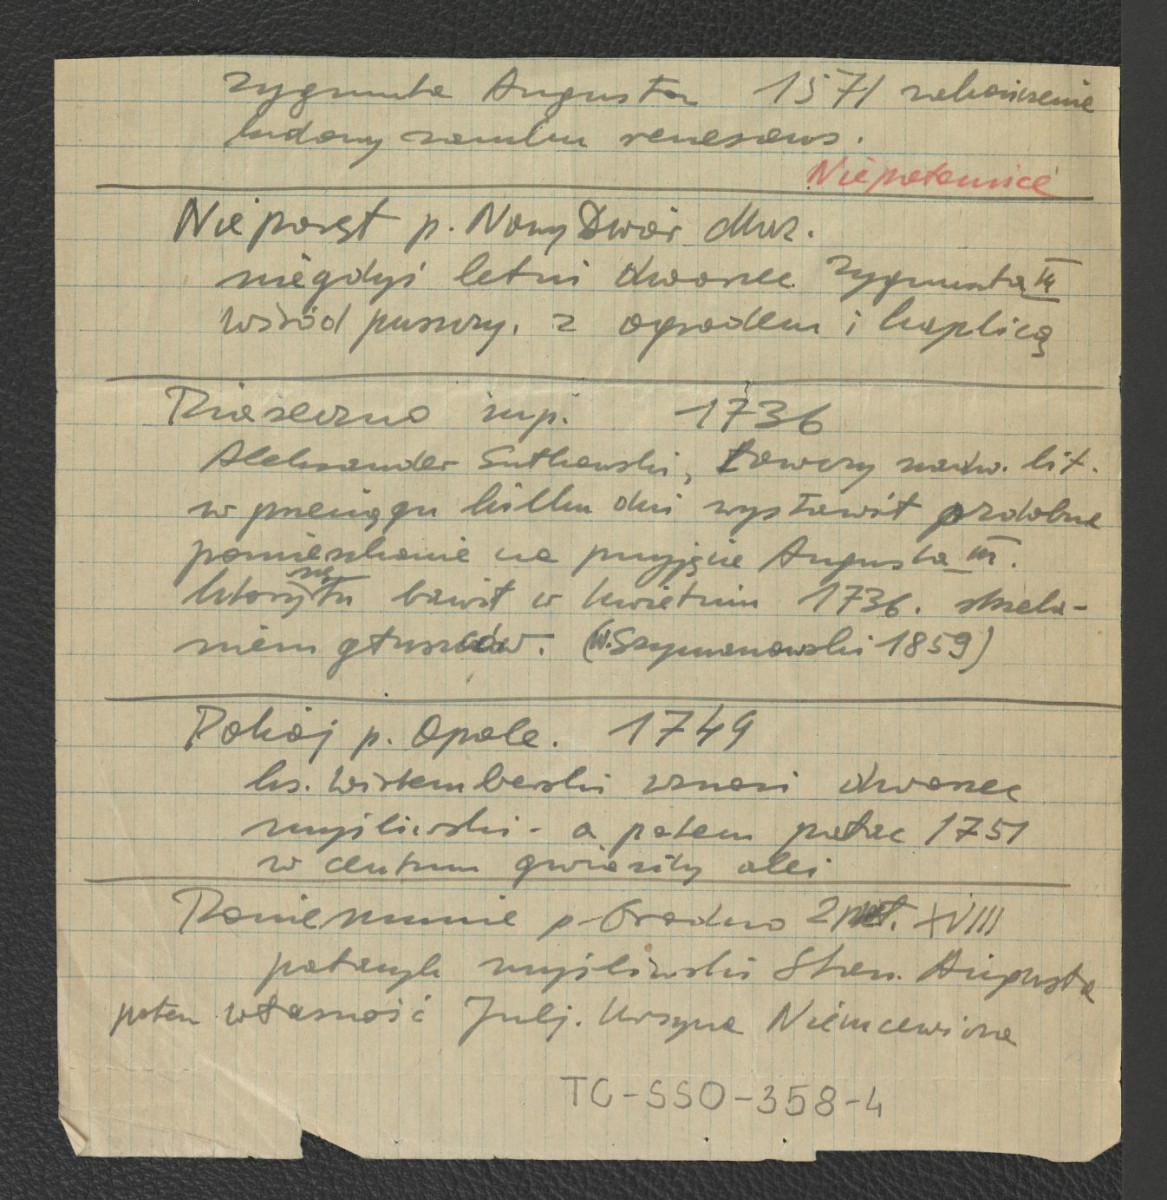 Zygmunta Augusta 1571 zakończenie
budowy zamku renesans.
Niepołomice
Nieporęt p. Nowy Dwór Maz.
niegdyś letni dworzec Zygmunta III
wśród puszczy, z ogrodem i kaplicą
Piaseczno 1736
Aleksander Sułkowski, Łowczy nadw. lit.
w przeciągu kilku dni wystawił ozdobne
pomieszkanie na przyjęcie Augusta III.
który się tu bawił w kwietniu 1736. strzela-
niem głuszców. (W. Szymanowski 1859)
Pokój p. Opole. 1749
ks. Wirtemberski wznosi dworzec
myśliwski - a potem pałac 1751
w centrum gwiazdy alei
Poniemunie p. Grodno 2 poł. XVIII
pałacyk myśliwski Stan. Augusta
potem własność Julj. Ursyna Niemcewicza
TG-SSO-358-4